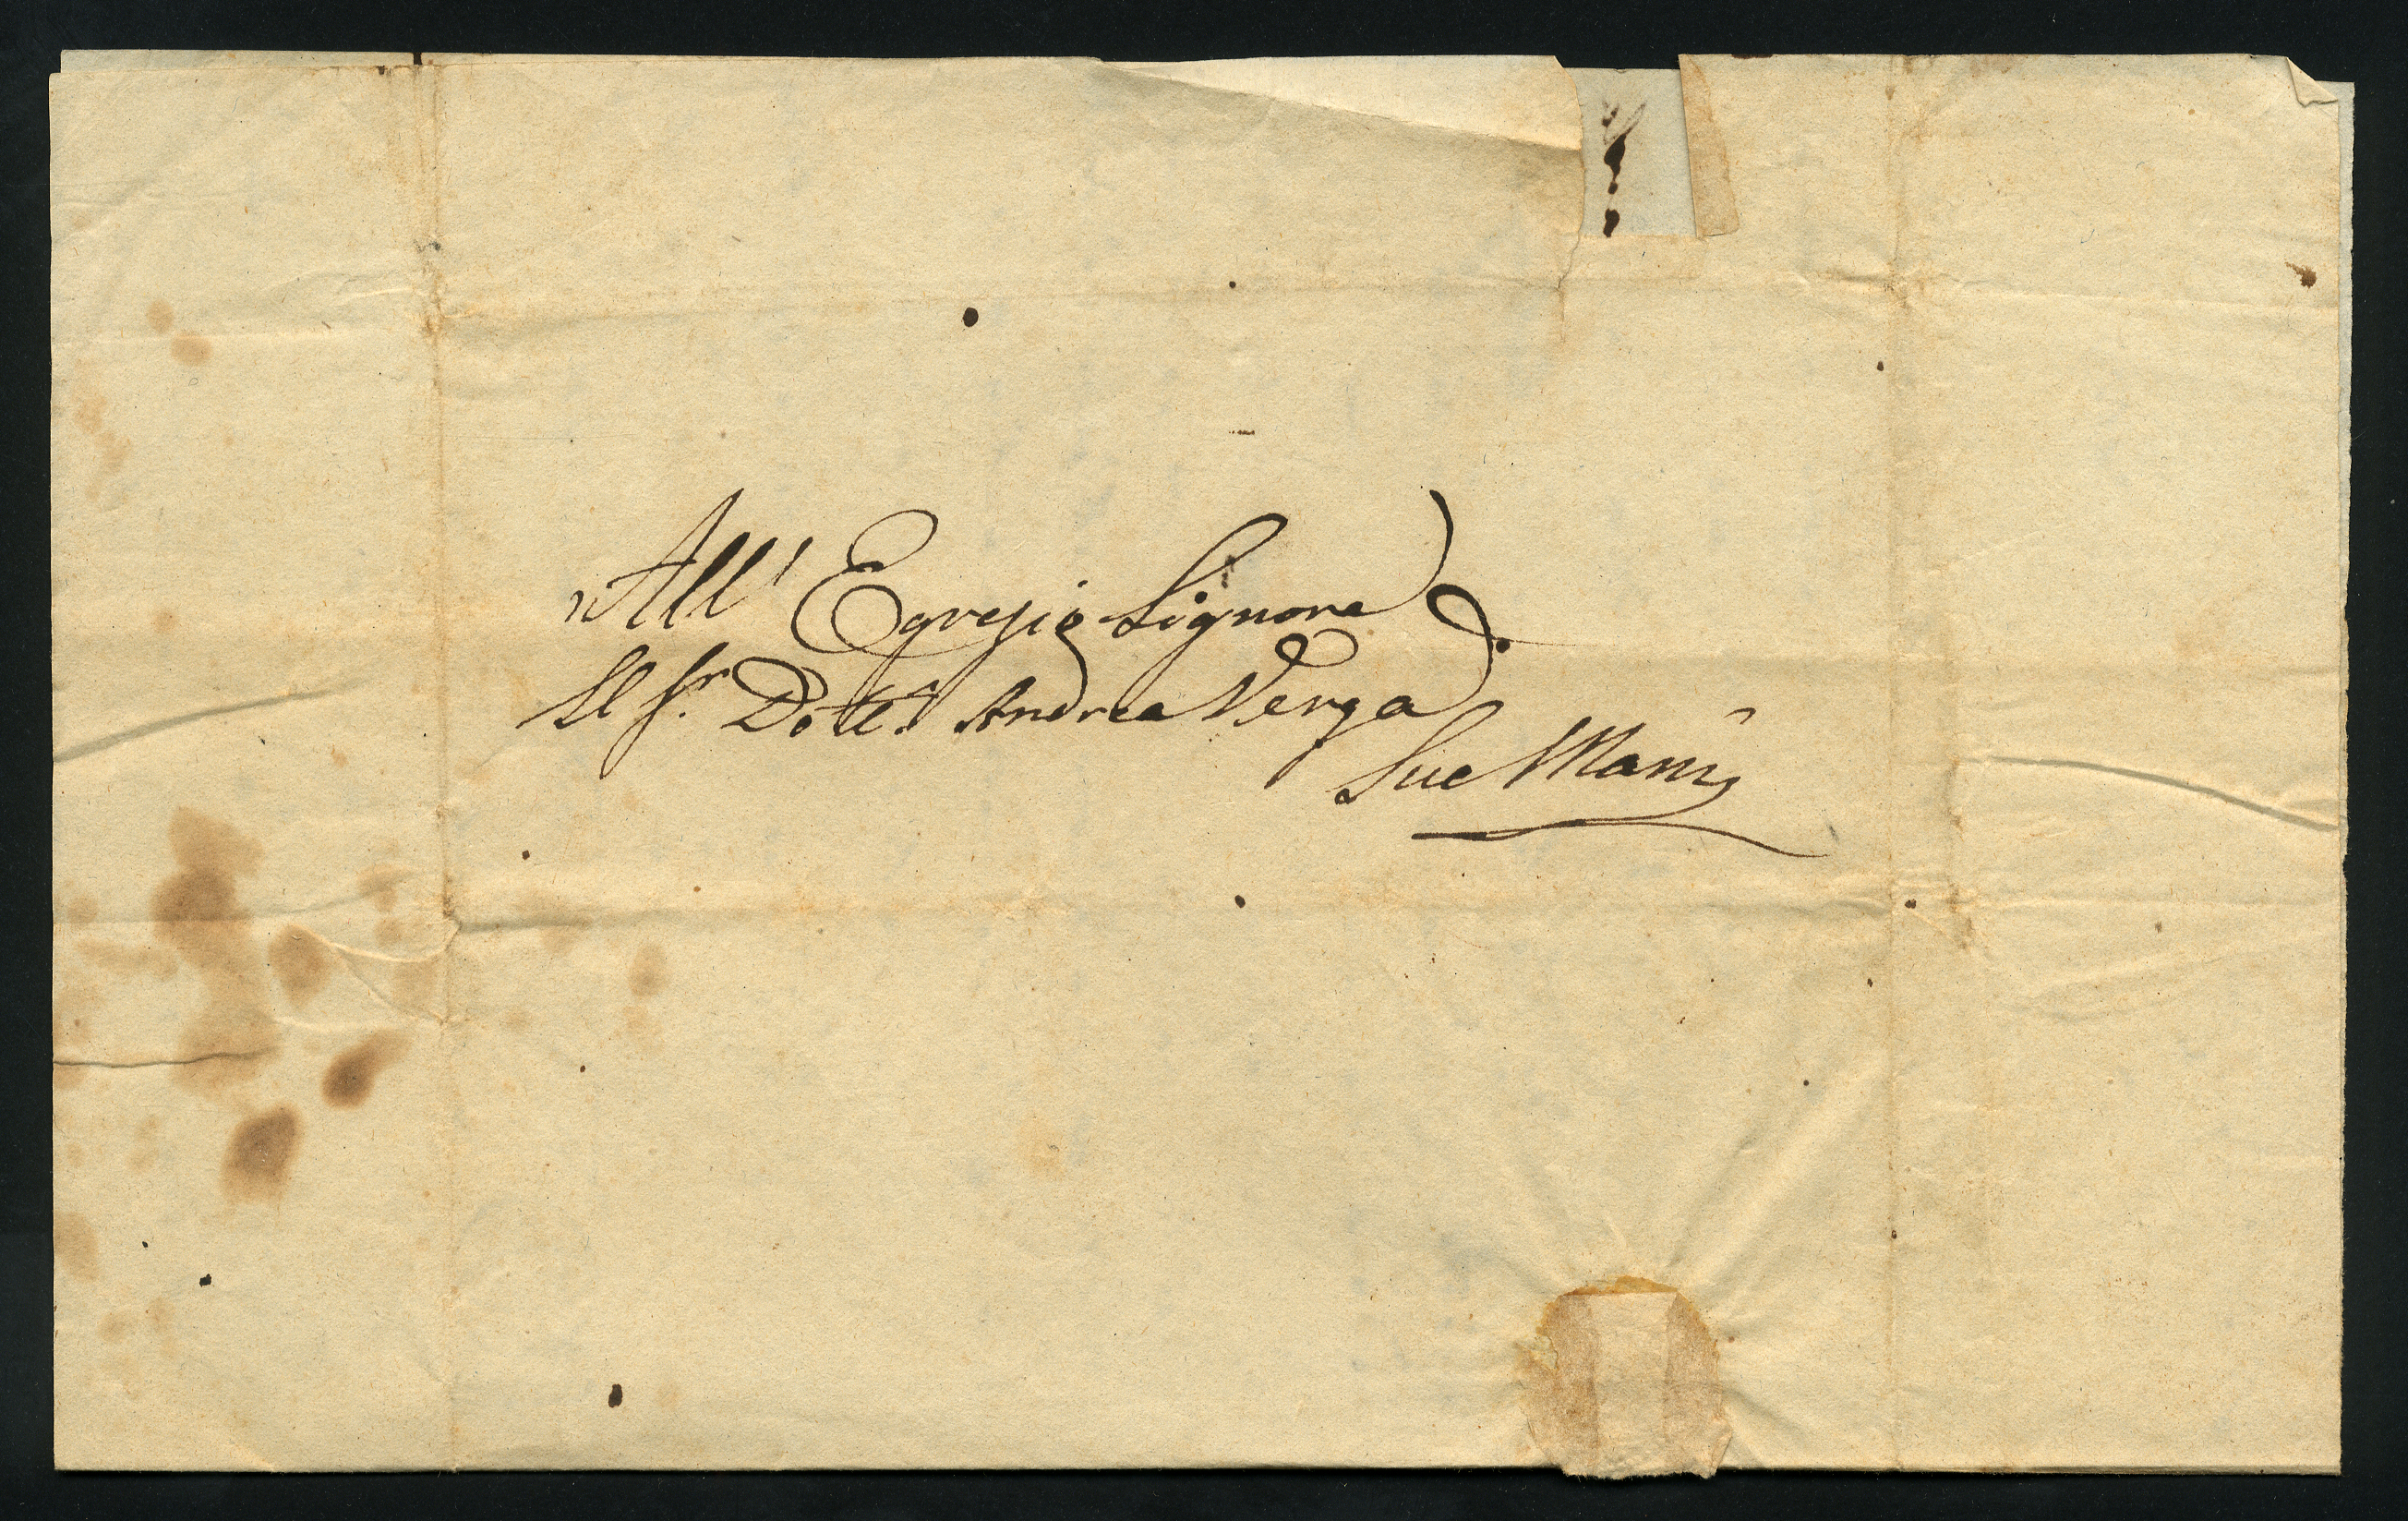 All' Egregio Signore
Il Sr. Dottr. Andrea Verga
Sue Mani